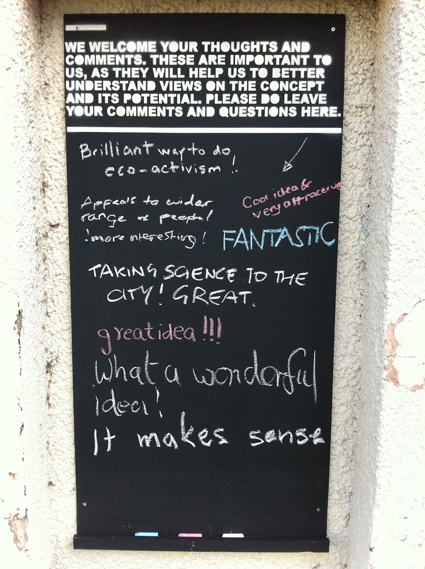 WE WELCOME YOUR THOUGHTS AND
COMMENTS. THESE ARE IMPORTANT TO
US, AS THEY WILL HELP US TO BETTER
UNDERSTAND VIEWS ON THE CONCEPT
AND ITS POTENTIAL. PLEASE DO LEAVE
YOUR COMMENTS AND QUESTIONS HERE.
Brilliant way to do
eco-activism!
Cool idea &
very attractive
Appeals to wider
range of people!
!more interesting!
FANTASTIC
TAKING SCIENCE TO THE
CITY! GREAT.
great idea!!!
What a wonderful
idea!
It makes sense